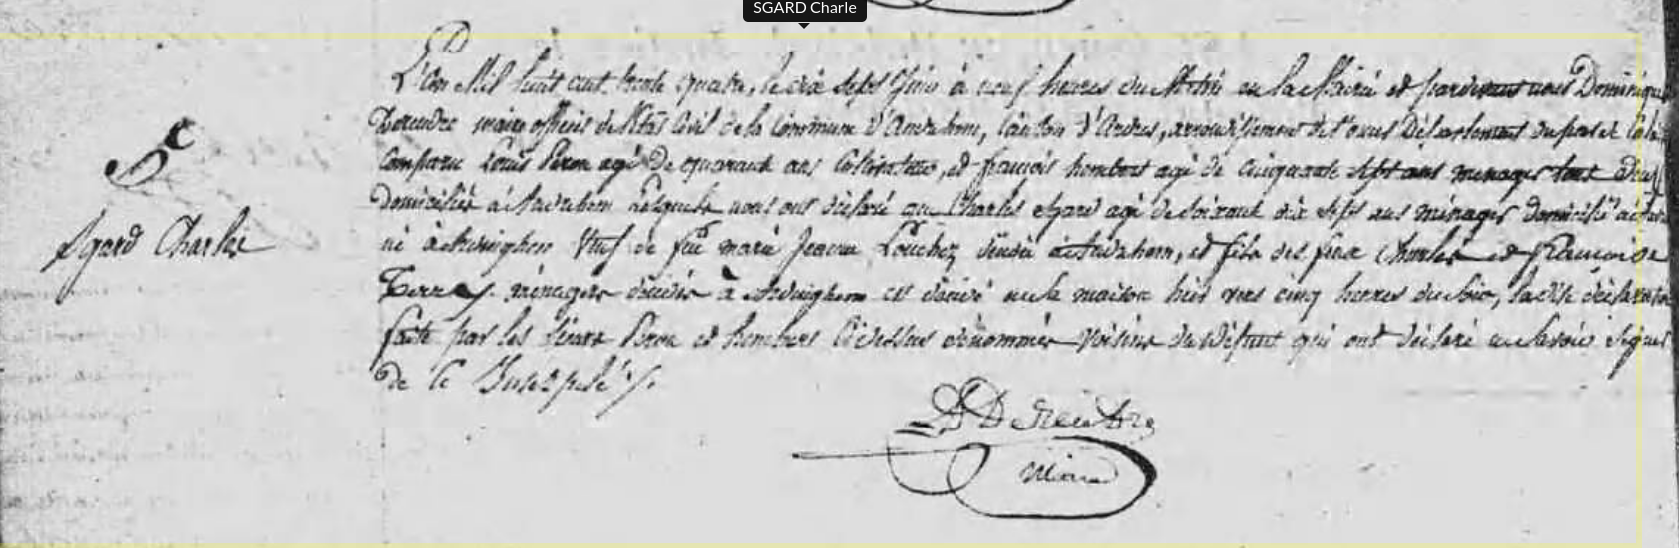 SGARD Charle
L'an Mil huit cent trente quatre, le dix sept Juin à neuf heures du Matin en la Mairie et pardevant nous Dominique
maire officier de l'Etat Civil de la Commune d'Audrehem, Canton d'Ardres, arrondissement de St omer Département du pas de Calais
Comparu Louis Peron agé de quarante ans Cultivateur, et françois hembert agé de cinquante sept ans menager tous deux
Dc
domiciliés à Audrehem Lesquels nous ont déclaré que Charles Sgard agé de Soixante dix Sept ans ménager domicilié
Sgard Charles
né à Audrehem Veuf de feue marie Jeanne Louchez décédée à Audrehem, et fils des feux Charles et Françoise
ménagers décédés à est décédé en la maison hier vers cinq heures du Soir, la dite déclaration
faite par les Sieurs Peron et hembert Cidessus dénommés Voisins du défunt qui ont déclaré ne Savoir Signer
de ce Interpelés
maire